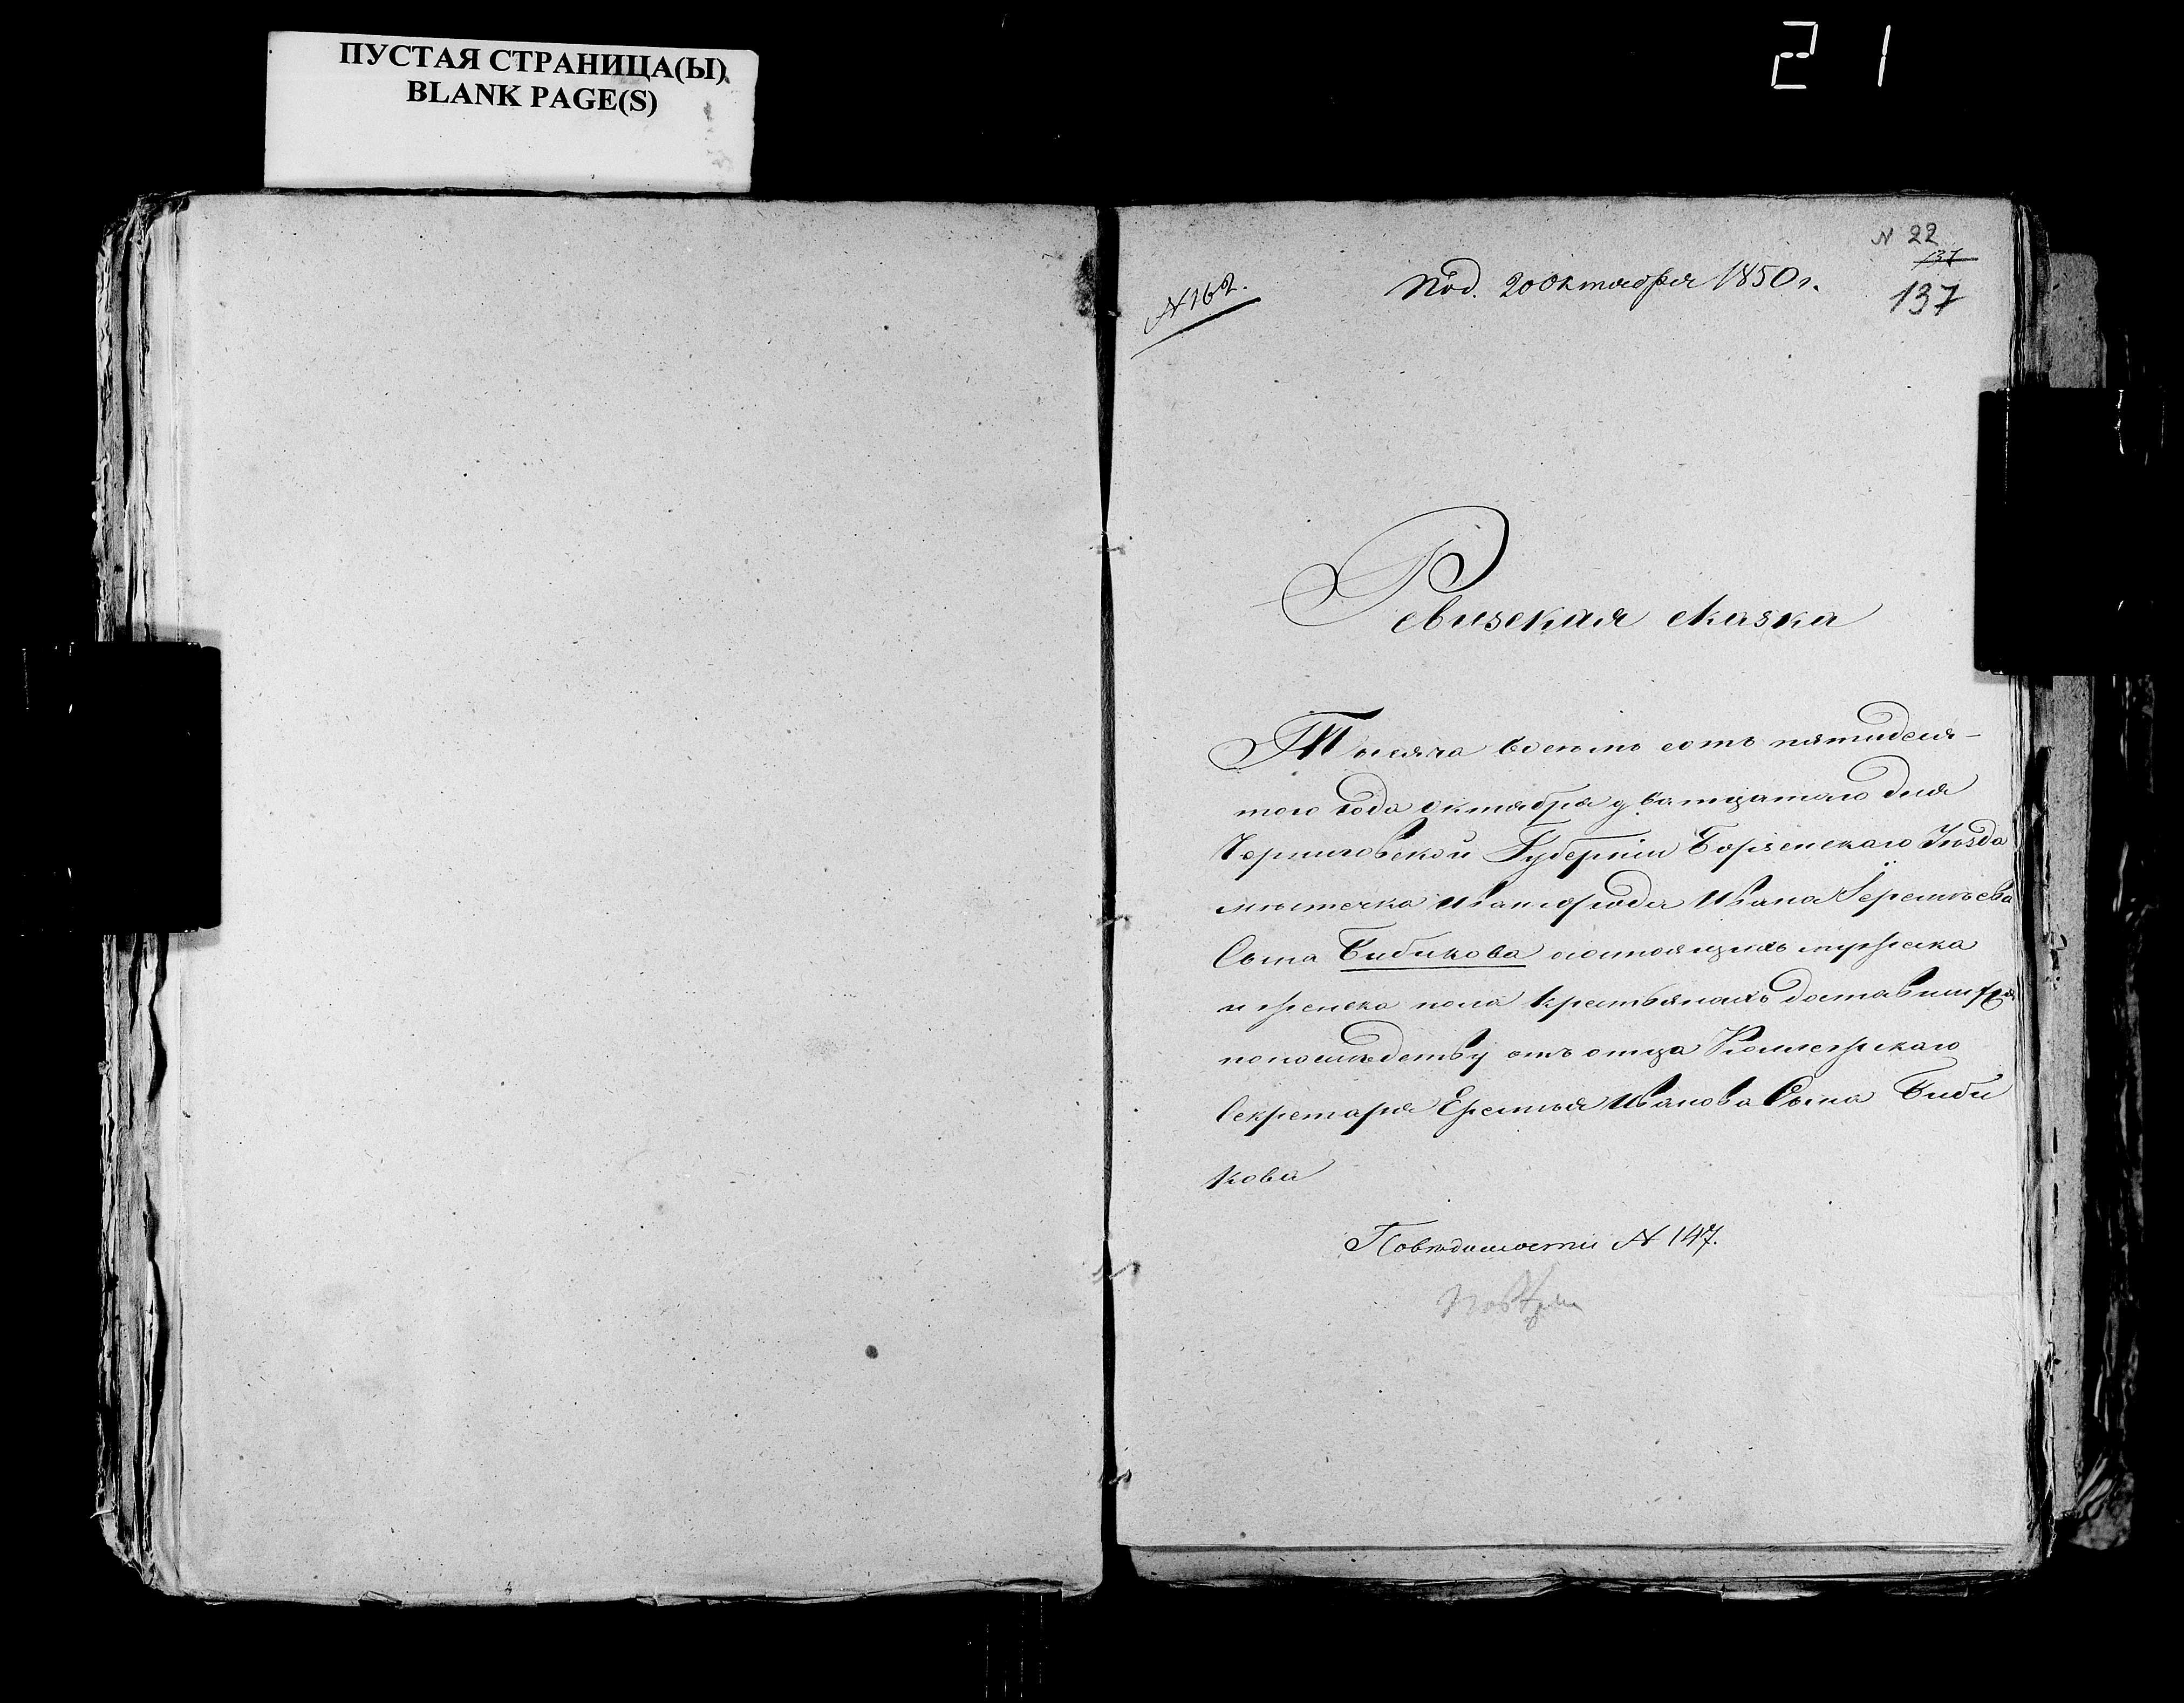 ПУСТАЯ СТРАНИЦА(Ы)
BLANK PAGE(S)
21
N 22
137
№ 162.
Под. 20 Октября 1850 г.
137
Ревизская сказка
Тысяча восемь сотъ пятидеся-
того года Октября дватцатого дня
Черниговской Губерніи Борзенскаго Уѣзда
мѣстечка Ивангорода Ивана Іеремѣева
Сына Бибикова состоящихъ мужеска
и женска пола крестьянахъ доставшихся
по послѣдству отъ отца Коллежскаго
Секретаря Еремѣя Иванова Сына Биби
кова
По вѣдомости № 147.